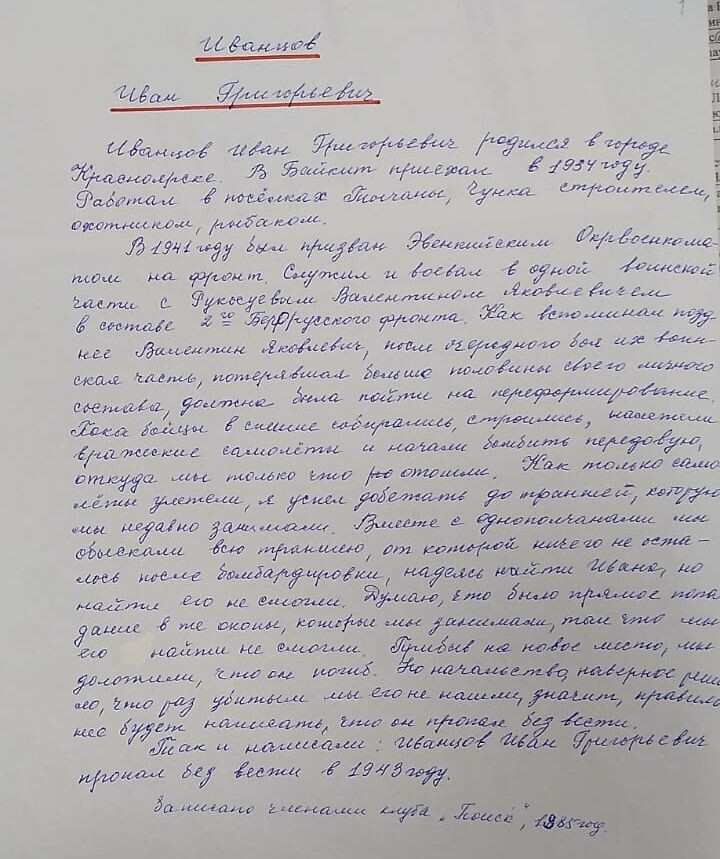 Иванцов
Иван Григорьевич
Иванцов Иван Григорьевич родился в городе
Красноярске. В Байкит приехал в 1934 году.
Работал в посёлках Тычаны, Чунка строителем,
охотником, рыбаком.
В 1941 году был призван Эвенкийским Окрвоенкома-
том на фронт. Служил и воевал в одной воинской
части с Рукосуевым Валентином Яковлевичем
в составе 2го Белоруссского фронта. Как вспоминал позд
нее Валентин Яковлевич, после очередного боя их воин-
ская часть, потерявшая больше половины своего личного
состава, должна была пойти на переформирование.
Пока бойцы в спешке собирались, строились, налетели
вражеские самолёты и начали бомбить передовую,
откуда мы только что отошли. Как только само
лёты улетели, я успел добежать до траншей, которую
мы недавно занимали. Вместе с однополчанами мы
обыскали всю траншею, от которой ничего не оста-
лось после бомбардировки, надеясь найти Ивана, но
найти его не смогли. Думаю, что было прямое попа
дание в те окопы, которые мы занимали, так что мы
его найти не смогли. Прибыв на новое место, мы
доложили, что он погиб. Но начальство, наверное реши
ло, что раз убитым мы его не нашли, значит, правиль
нее будет написать, что он пропал без вести.
Так и написали: Иванцов Иван Григорьевич
пропал без вести в 1943 году.
Записано членами клуба „Поиск", 1985 год.